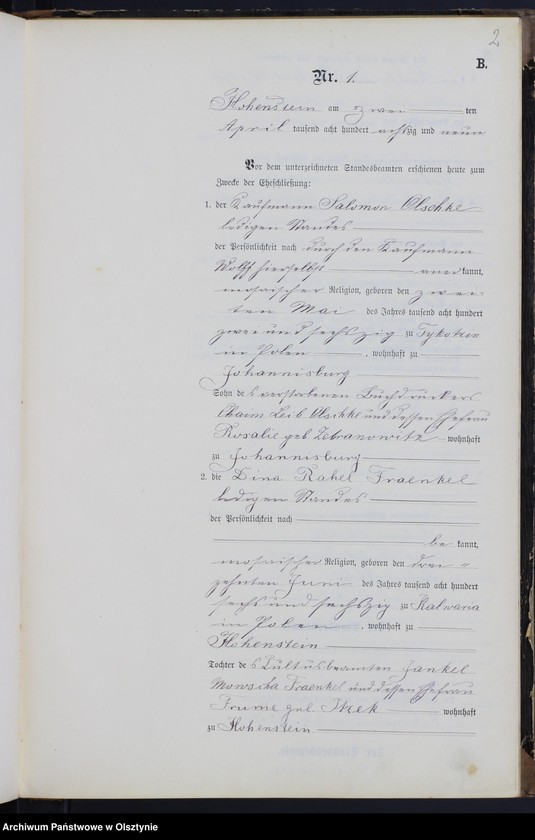 2
B.
Nr. 1.
Hohenstein am zwei ten
April tausend acht hundert achtzig und neun
Vor dem unterzeichneten Standesbeamten erschienen heute zum
Zwecke der Eheschließung:
1. der Kaufmann Salomon Olschke
ledigen Standes
der Persönlichkeit nach durch den Kaufmann
Wolff hierselbst anerkannt,
mosaischer Religion, geboren den zwei-
ten Mai des Jahres tausend acht hundert
zwei und sechszig zu Tykotzin
in Polen, wohnhaft zu
Johannisburg
Sohn des verstorbenen Buchdruckers
Chaim Leib Olschke und dessen Ehefrau
Rosalie geb. wohnhaft
zu Johannisburg
2. die Dina Rahel Fraenkel
ledigen Standes
der Persönlichkeit nach
be kannt,
mosaischer Religion, geboren den drei-
zehnten Juni des Jahres tausend acht hundert
sechs und sechszig zu Kalwaria
in Polen, wohnhaft zu
Hohenstein
Tochter des Kultusbeamten Jankel
Mowscha Fraenkel und dessen Ehefrau
Frume geb. Itzek wohnhaft
zu Hohenstein
Archiwum Państwowe w Olsztynie